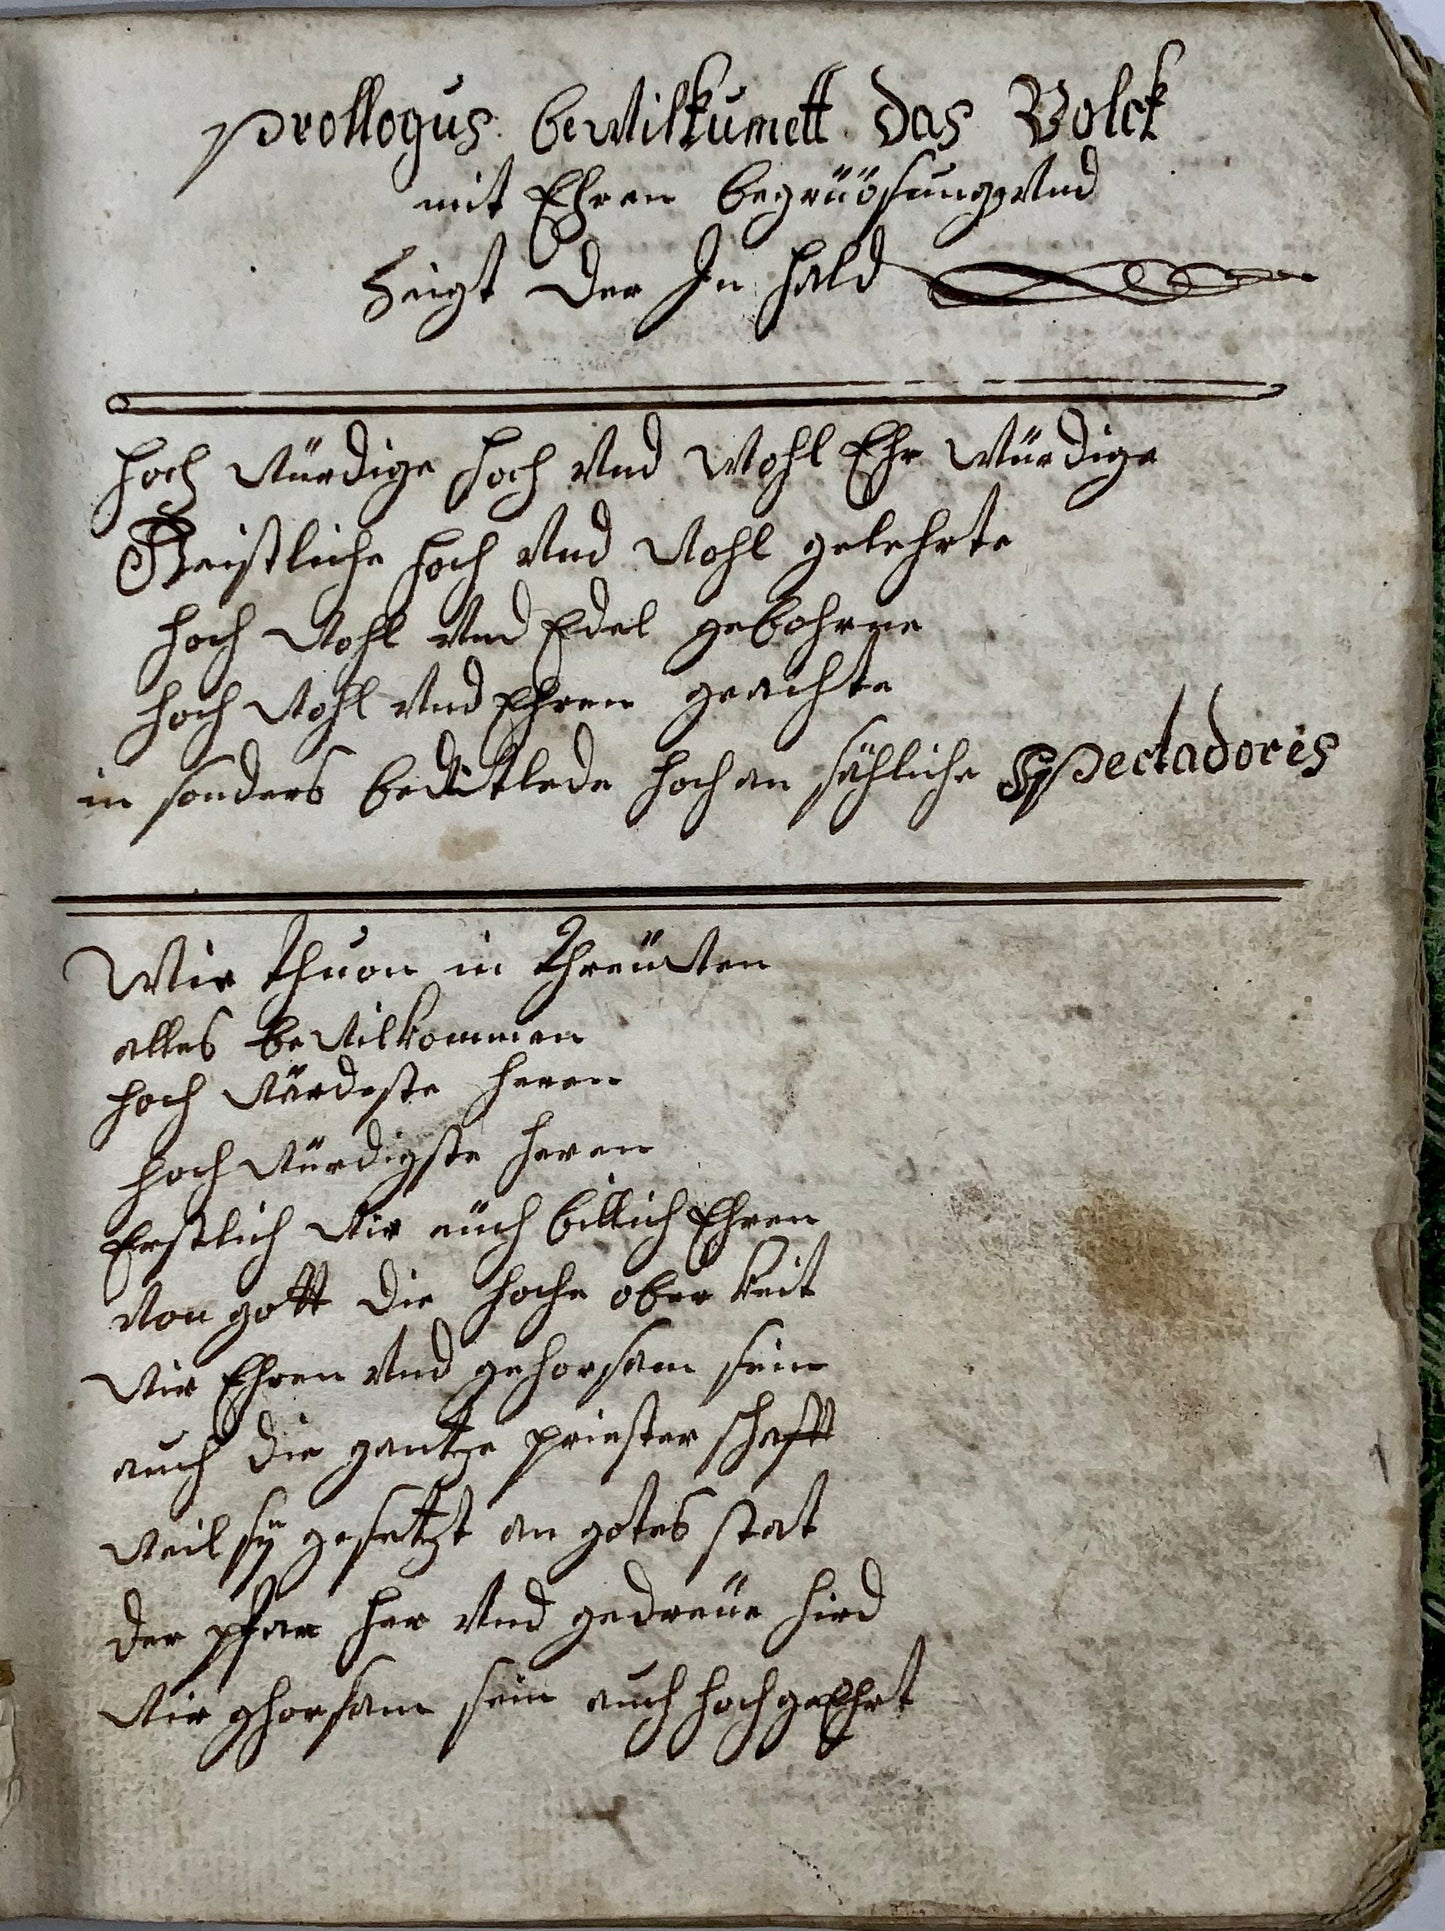 prollogus bewilkumett das Volck
mit Ehren begrüösung Vnd
Zeigt der In hald
hoch würdige hoch Vnd Wohl Ehr Würdige
Geistliche hoch Vnd wohl gelehrte
hoch wohl Vnd Edel gebohrne
hoch wohl Vnd Ehren geachte
in sonders bedittlede hoch an sähliche Spectadores
Wir thuon in threüwen
alles bewilkommen
hoch wärdeste heren
hoch würdigste heren
Erstlich wir eüch billich Ehren
Von gott die hoche ober keit
wir Ehren Vnd gehorsam sein
auch die gantze priester schafft
weil sÿ gesetzt an gotes stat
der pfar her Vnd gedreüe hird
wir ghorsam sein auch hoch geEhrt